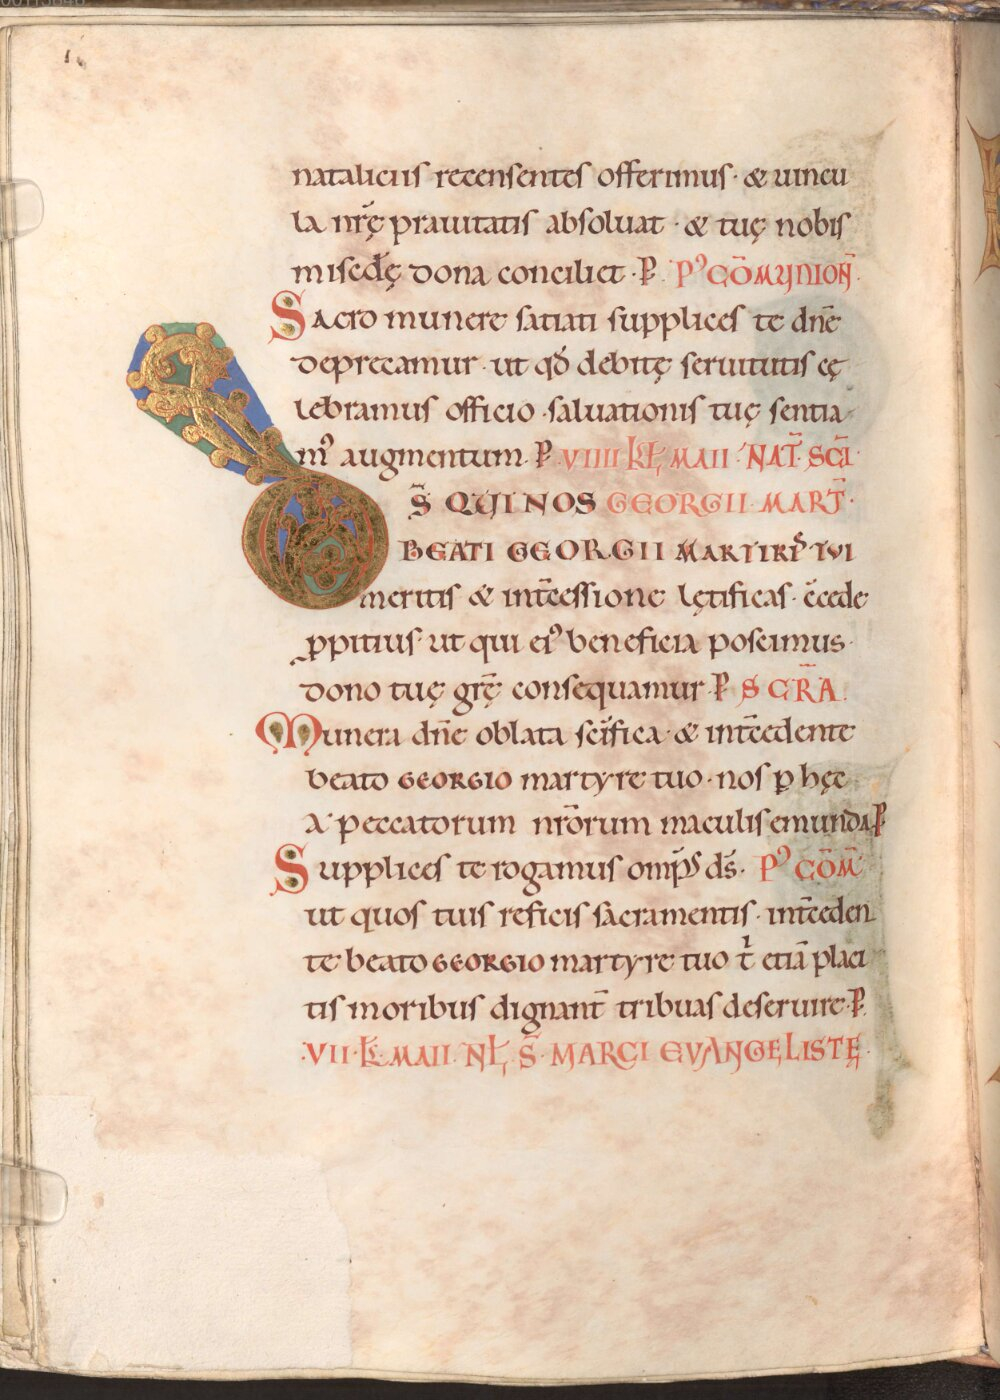 nataliciis recensentes offerimus · & uincu
la nr̄ę prauitatis absoluat · & tuę nobis
misc̄dę dona conciliet · P̄ Pꝰ CŌMUNION̄
Sacro munere satiati supplices te dn̄e
deprecamur · ut qđ debitę seruitutis cę
lebramus officio · saluationis tuę sentia
mꝰ augmentum · P̄ · VIIII · KŁ · MAII · NAT̄ · SC̄I ·
D̄S QUI NOS GEORGII · MART̄ ·
BEATI GEORGII MARTIRIS · TUI
meritis & int̄cessione lętificas · c̄cede
ꝓpitius · ut qui eiꝰ beneficia poscimus ·
dono tuę gr̄ę consequamur P̄ SCR̄A
Munera dn̄e oblata sc̄ifica · & int̄cedente
beato GEORGIO martyre tuo · nos ꝑ hęc
a peccatorum nr̄orum maculis emunda P̄
Supplices te rogamus omp̄s ds̄ · Pꝰ CŌM̄
ut quos tuis reficis sacramentis · int̄ceden
te beato GEORGIO martyre tuo t̄ etiā placi
tis moribus dignant̄ tribuas deseruire · P̄
· VII · KŁ · MAII · NŁ · S̄ · MARCI EVANGELISTĘ ·